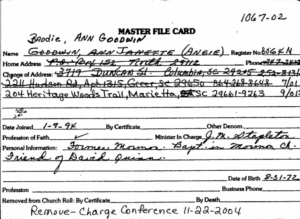 1067-02
MASTER FILE CARD
Brodie, ANN GOODWIN
Name GOODWIN, ANN JANETTE (ANGIE) Register No.
Home Address P.O. Box 152, North 29112
Change of Address: 3719 Duncan St. Columbia, SC 29205
2211 Hudson Rd, Apt 1315, Greer, SC 29650 864-268-3648 7/01
204 Heritage Woods Trail, Marietta, SC 29661-9763 9/01
Date Joined 1-9-94 By Certificate Other Denom.
Profession of Faith ✓ Minister In Charge J. M. Stapleton
Personal Information: Former Mormon Bapt. in Mormon Ch.
Friend of David
Date of Birth 8-31-72
Profession Business Phone
Removed from Church Roll: By Certificate Date of Death
Remove-Charge Conference 11-22-2004